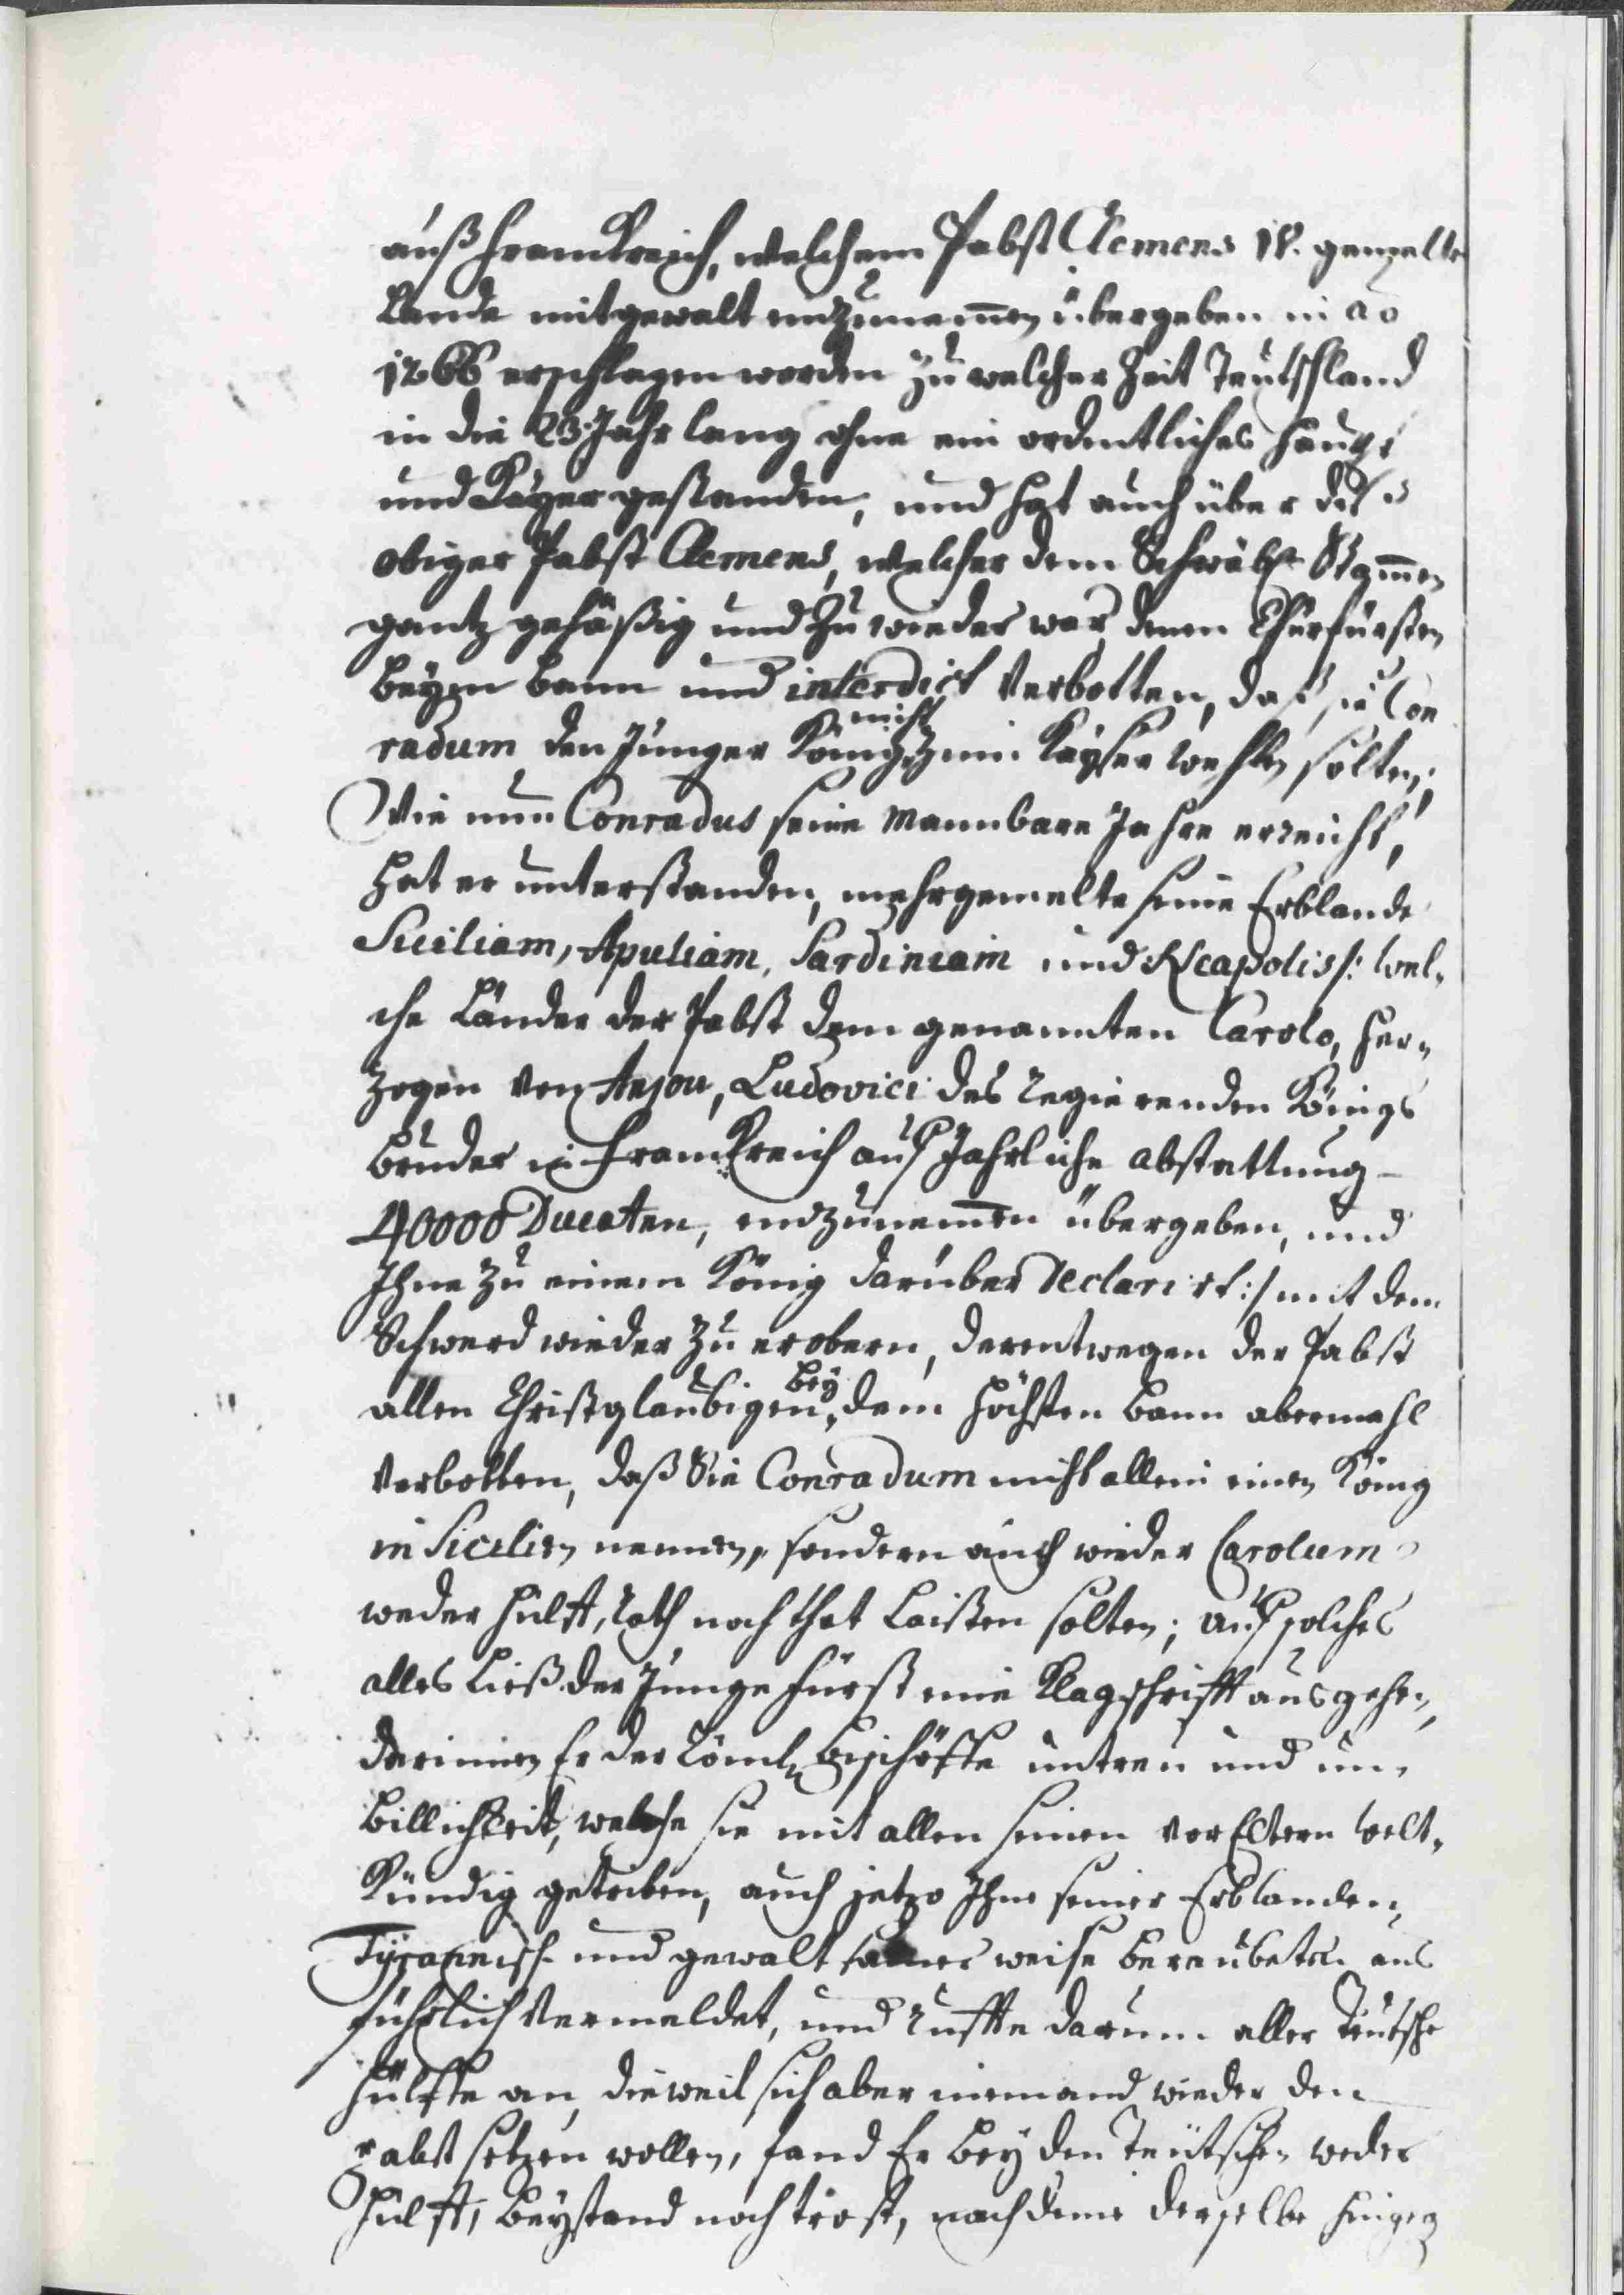 auß Franckreich, welchem Pabst Clemens IV. gemelte
Lande mit gewalt einzunemen übergeben in ao
1266 erschlagen worden zu welcher Zeit Teutschland
in die 23. Jahr lang ohne ein ordentliches Haupt
und Kayser gestanden, und hat auch über diß
obiger Pabst Clemens, welcher dem Schwäb. Stamen
gantz gehäßig und zu wieder war, denen Churfürsten
beym bann und interdict verbotten, daß sie Con
nicht
radum den Junger König zum Kayser wehlen solten;
Wie nun Conradus seine Mannbare Jahre erreicht,
hat er unterstanden, mehrgemelte seine Erblande
Siciliam, Apuliam, Sardiniam und Neapolis /: wel-
che Länder der Pabst dem genannten Carolo, Her-
zogen von Anjou, Ludovici des regierenden Königs
bruder in Franckreich auf Jährliche abstattung
40000 Ducaten, einzunemen übergeben, und
Ihne zu einem König darüber declarirt :/ mit dem
Schwerd wieder zu erobern, derentwegen der Pabst
bey
allen Christglaubigen dem höchsten bann abermahl
verbotten, daß Sie Conradum nicht allein einen König
in Sicilien nennen, sondern auch wieder Carolum
weder hülff, rath noch that laisten solten; auf solches
alles ließ der Junge Fürst eine Klagschrifft ausgehen,
darinnen Er der Röml. Bischöffe untreu und un-
billichkeit, welche sie mit allen seinen vorEltern welt-
kündig getriben, auch jetzo Ihne seiner Erblanden,
Tyrannisch und gewalt weise beraubeten aus
führlich vermeldet, und ruffte darum aller Teutsche
hülffe an, dieweil sich aber niemand wieder den
Pabst setzen wollen, fand Er bey den Teütschen weder
hülff, beystand noch trost, nachdeme derselbe hingeg